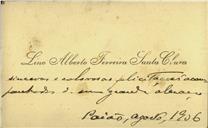 Lino Alberto Ferreira Santa Clara
sinceras e calorosas felicitações acom
panhadas d'um grande abraço
Paião, agosto, 1906